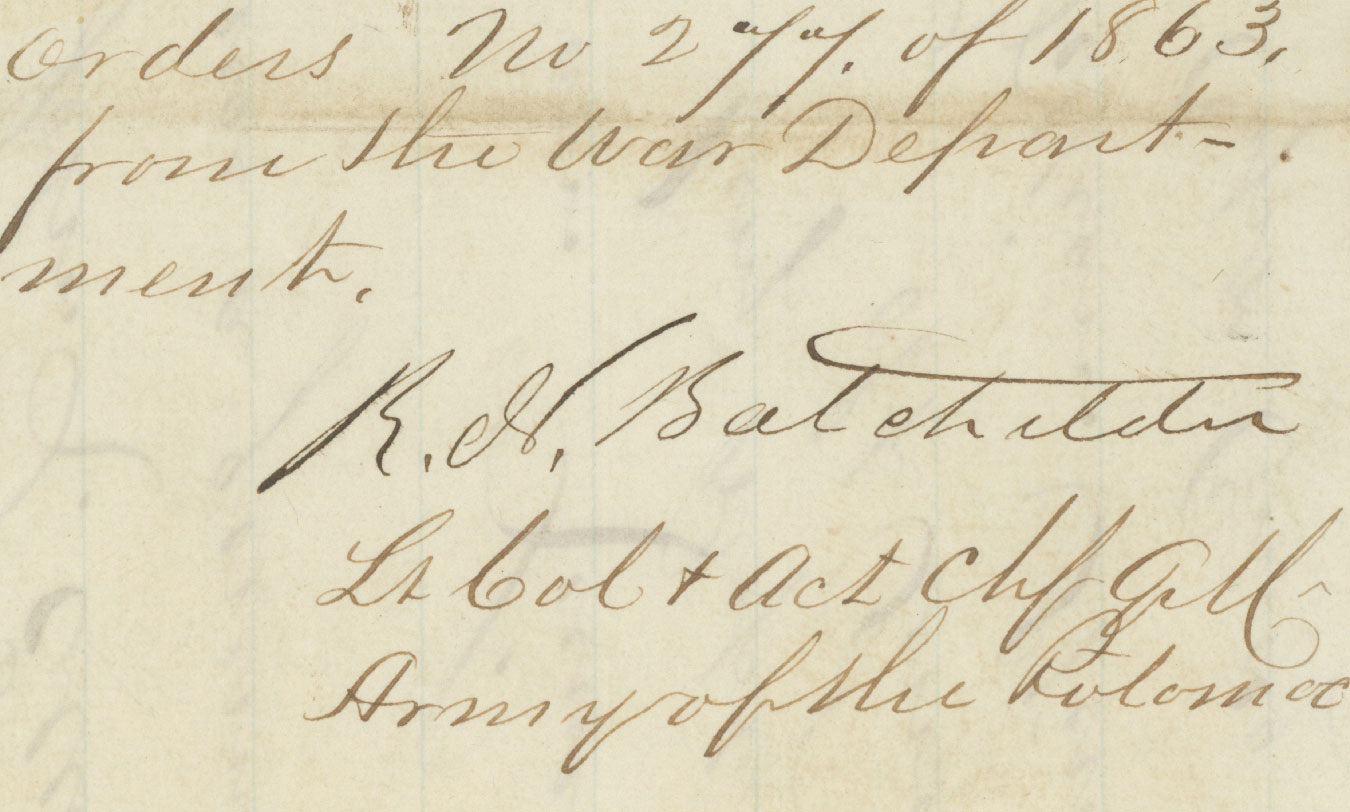 Orders No 277. of 1863,
from the War Depart-
ment.
R. N. Batchelder
Lt Col & Act Chf QM
Army of the Potomac